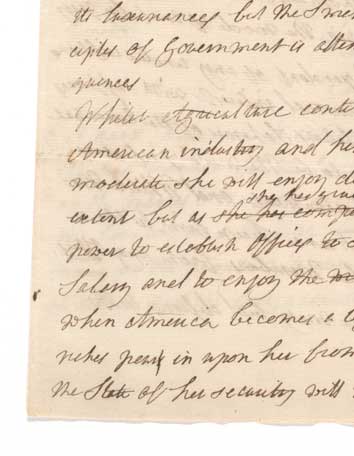 its luxuriances but the
ciples of Government is
quences
Whilst Agriculture
American industry and
moderate she will enjoy
she has
extent but as she has
power to establish Offices to
Salary and to enjoy the
when America becomes a
riches pour in upon her
the State of her security will